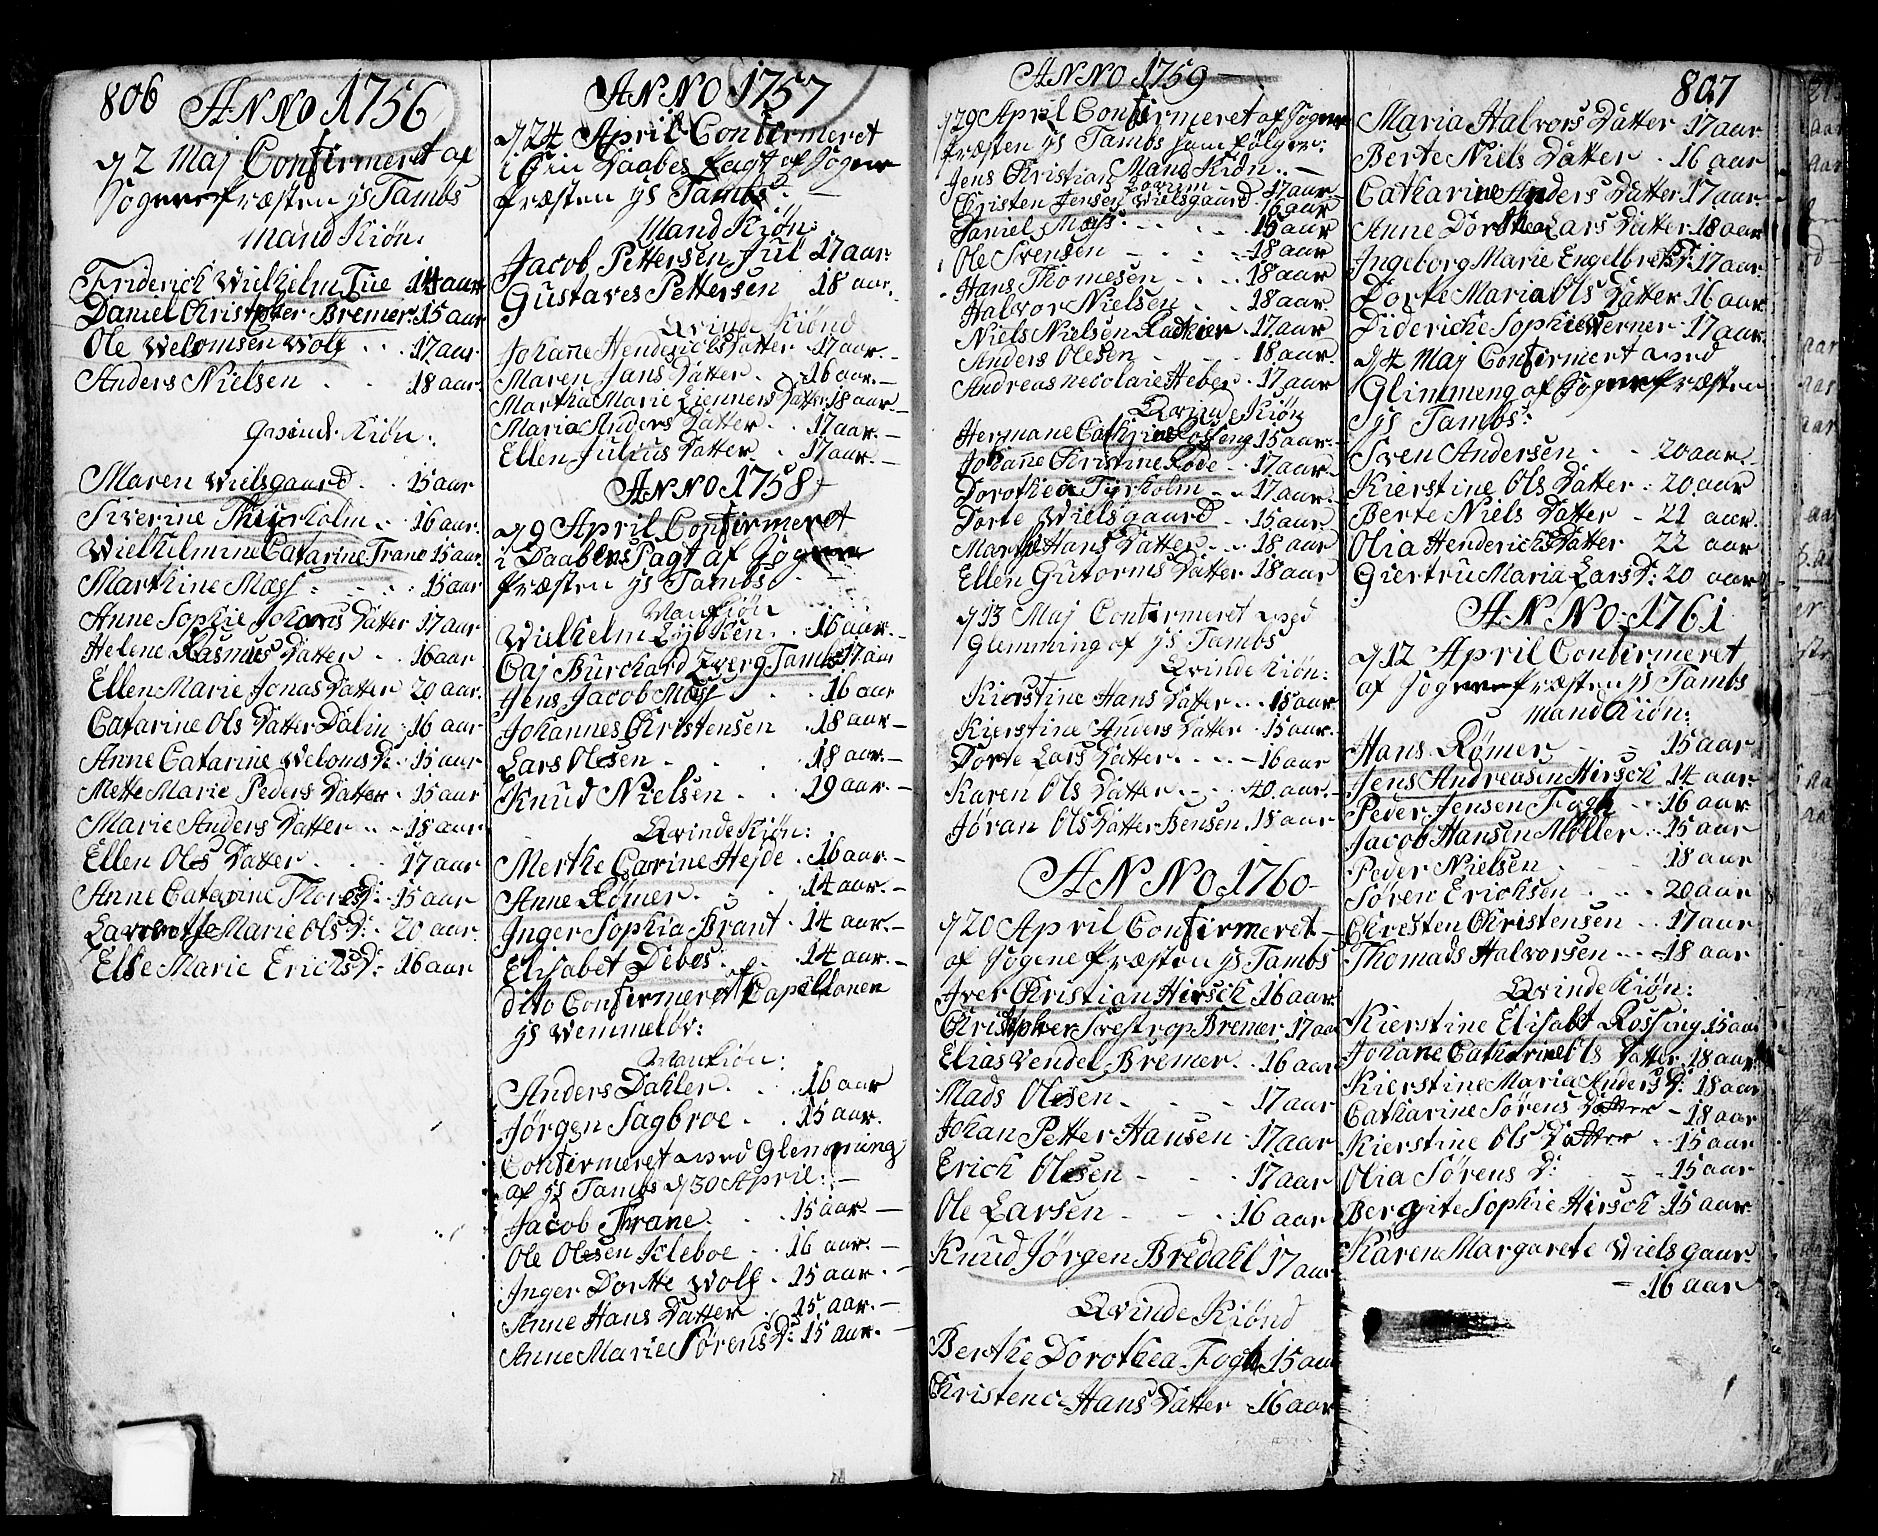 806
ANNO 1756
d 2 Maj Confirmeret af
Sogne Præsten Hs Tambs
Mand Kiøn:
Friderich Wielhelm Tue 14 aar
Daniel Christopher Bremer. 15 aar
Ole Welomsen Wolf . . 17 aar
Anders Nielsen . . 18 aar.
Qvinde Kiøn:
Maren Wielsgaard . . 15 aar
Siverine Thyrholm . . 16 aar.
Wielhelmine Catarine Trane 15 aar.
Marthine Mass . . . 15 aar
Anne Sophie Johans Datter 17 aar
Helene Rasmus Datter . . 16 aar
Ellen Marie Jonas Datter 20 aar.
Catarine Ols Datter Dalin . 16 aar
Anne Catarine Weloms D: . 15 aar
Mette Marie Peders Datter . 15 aar
Marie Anders Datter . . 18 aar
Ellen Oles Datter . . 17 aar
Anne Catarine Thores D: . 15 aar
Marie Ols D: . 20 aar.
Else Marie Erichs D: . 16 aar
ANNO 1757
d 24 April Confirmeret
i Daabes Pagt af Sogne
Præsten Hs Tambs.
Mand Kiøn
Jacob Pettersen Jul 17 aar
Gustaves Pettersen 18 aar.
Qvinde Kiønd
Johanne Henderichs Datter . 17 aar. -
Maren Jans Datter . . 16 aar. -
Martha Marie Datter 18 aar. -
Maria Anders Datter . . 17 aar. -
Ellen Julius Datter . 17 aar. -
ANNO 1758
d 9 April Confirmeret
i Daabens Pagt af Sogne
Præsten Hs Tambs. -
Mankiøn
Wielhelm Lybken . . 16 aar. -
Caj Burchard Tverg Tambs 17 aar
Jens Jacob Mass . . 16 aar
Johannes Christensen 18 aar. -
Lars Olesen . . . 18 aar. -
Knud Nielsen . . 19 aar. -
Qvinde Kiøn:
Merthe Carine Hejde . 16 aar. -
Anne Rømer . . 14 aar. -
Inger Sophia Brant . 14 aar. -
Elisabet Debes . . 14 aar. -
dito Confirmeret af Capellanen
Hs Wemmeløv:
Mankiøn:
Anders Dahler . . 16 aar
Jørgen Sagbroe . . 15 aar.
Confirmeret wed Glemming
af Hs Tambs d 30 April: -
Jacob Thrane . . 15 aar. -
Ole Olesen Kleboe . . 16 aar. -
Inger Dortte Wolf . 15 aar. -
Anne Hans Datter . 15 aar. -
Anne Marie Sørens D: 15 aar. -
ANNO 1759 -
d 29 April Confirmeret af Sogne
Præsten Hs Tambs som følger:
Mand Kiøn. -
Jens Christian . 17 aar
Christen Jensen Wielsgaard . 16 aar
Daniel Mass . . . 15 aar
Ole Svensen - . . 18 aar
Hans Thomesen - . . 18 aar
Halvor Nielsen - . . 18 aar
Niels Nielsen . 17 aar
Anders Olesen - - - 18 aar.
Andreas Necolaie Heber . 17 aar
Qvinde Kiøn
Hermane Cathrine Rosseng 15 aar. -
Johanne Christine Rode . . 17 aar.
Dorothea Tyrholm . . 17 aar.
Dorte Wielsgaard . . 15 aar
Hans Datter . . 18 aar
Ellen Gutorms Datter . 18 aar
d 13 Maj Confirmeret wed
Glemming af Hs Tambs
Qvinde Kiøn:
Kierstine Hans Datter . . 18 aar
Kierstine Anders Datter . 15 aar.
Dorte Lars Datter . . . . 16 aar
Karen Ols Datter . . . 40 aar. -
Jøran Ols Datter Bensen . 18 aar
ANNO 1760 -
d 20 April Confirmeret -
af Sogne Præsten Hs Tambs
Iver Christian Hirsch 16 aar.
Christopher Svestrop Bremer . 17 aar
Elias Wendel Bremer . . 16 aar
Mads Olesen . - - 17 aar
Johan Petter Hansen . 17 aar
Erich Olesen - - - 17 aar
Ole Larsen - - . 16 aar
Knud Jørgen Bredahl 17 aar
Qvinde Kiønd
Berthe Dorothea Fogh . 15 aar
Christence Hans Datter . 16 aar
807
Maria Halvors Datter 17 aar
Berte Niels Datter . 16 aar
Catharine Anders Datter 17 aar.
Anne Dorthea Lars Datter 18 aar
Ingeborg Marie Engelbrets D: 17 aar.
Dorte Maria Ols Datter 16 aar
Diderich Sophie Werner . 17 aar.
d 4 Maj Confirmert wed
Glimmeng af Sogne Præsten
Hs Tambs:
Sven Andersen . . 20 aar.
Kierstine Ols Datter . 20 aar
Berte Niels Datter - 21 aar.
Olia Henderichs Datter 22 aar
Giertru Maria Lars D: 20 aar
ANNO 1761
d 12 April Confirmeret
af Sogne Præsten Hs Tambs
Mand Kiøn:
Hans Rømer - - 15 aar.
Jens Andreasen Hirsch 14 aar.
Peder Jensen Fogh . . 16 aar
Jacob Hansen Møller . . 15 aar
Peder Nielsen - - - 18 aar
Søren Erichsen . . . 20 aar
Christen Christensen . . 17 aar
Thomads Halvorsen . . 18 aar
Qvinde Kiøn:
Kierstine Elisabt Rossing 15 aar
Johane Catharine Ols Datter . 18 aar.
Kierstine Maria Anders D: 18 aar
Catharine Sørens Datter - 18 aar
Kierstine Ols Datter . . 15 aar
Olia Sørens D: - - 15 aar
Bergite Sophie Hirsch 15 aar
Karen Margarete Wielsgaar.
- 16 aar